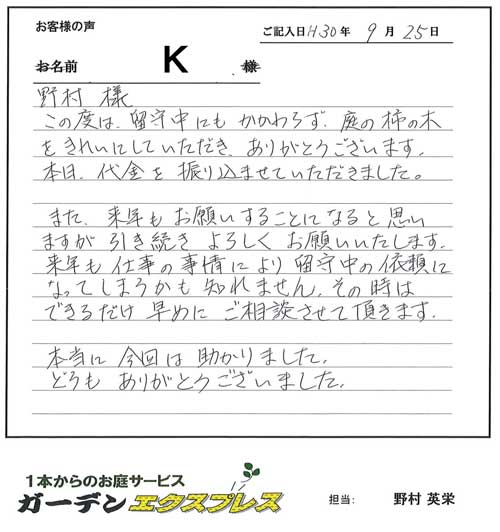 お客様の声
ご記入日H30年 9月25日
お名前 K 様
野村 様
この度は、留守中にも かかわらず、庭の柿の木
をきれいにしていただき、ありがとうございます。
本日、代金を 振り込ませていただきました。
また、来年も お願いすることに なると 思い
ますが 引き続き よろしく お願いいたします。
来年も 仕事の 事情に より 留守中の 依頼に
なってしまうかも 知れません。その 時は
できるだけ 早めに ご相談させて 頂きます。
本当に 今回は 助かりました。
どうも ありがとうございました。
1本からのお庭サービス
ガーデンエクスプレス
担当: 野村 英栄